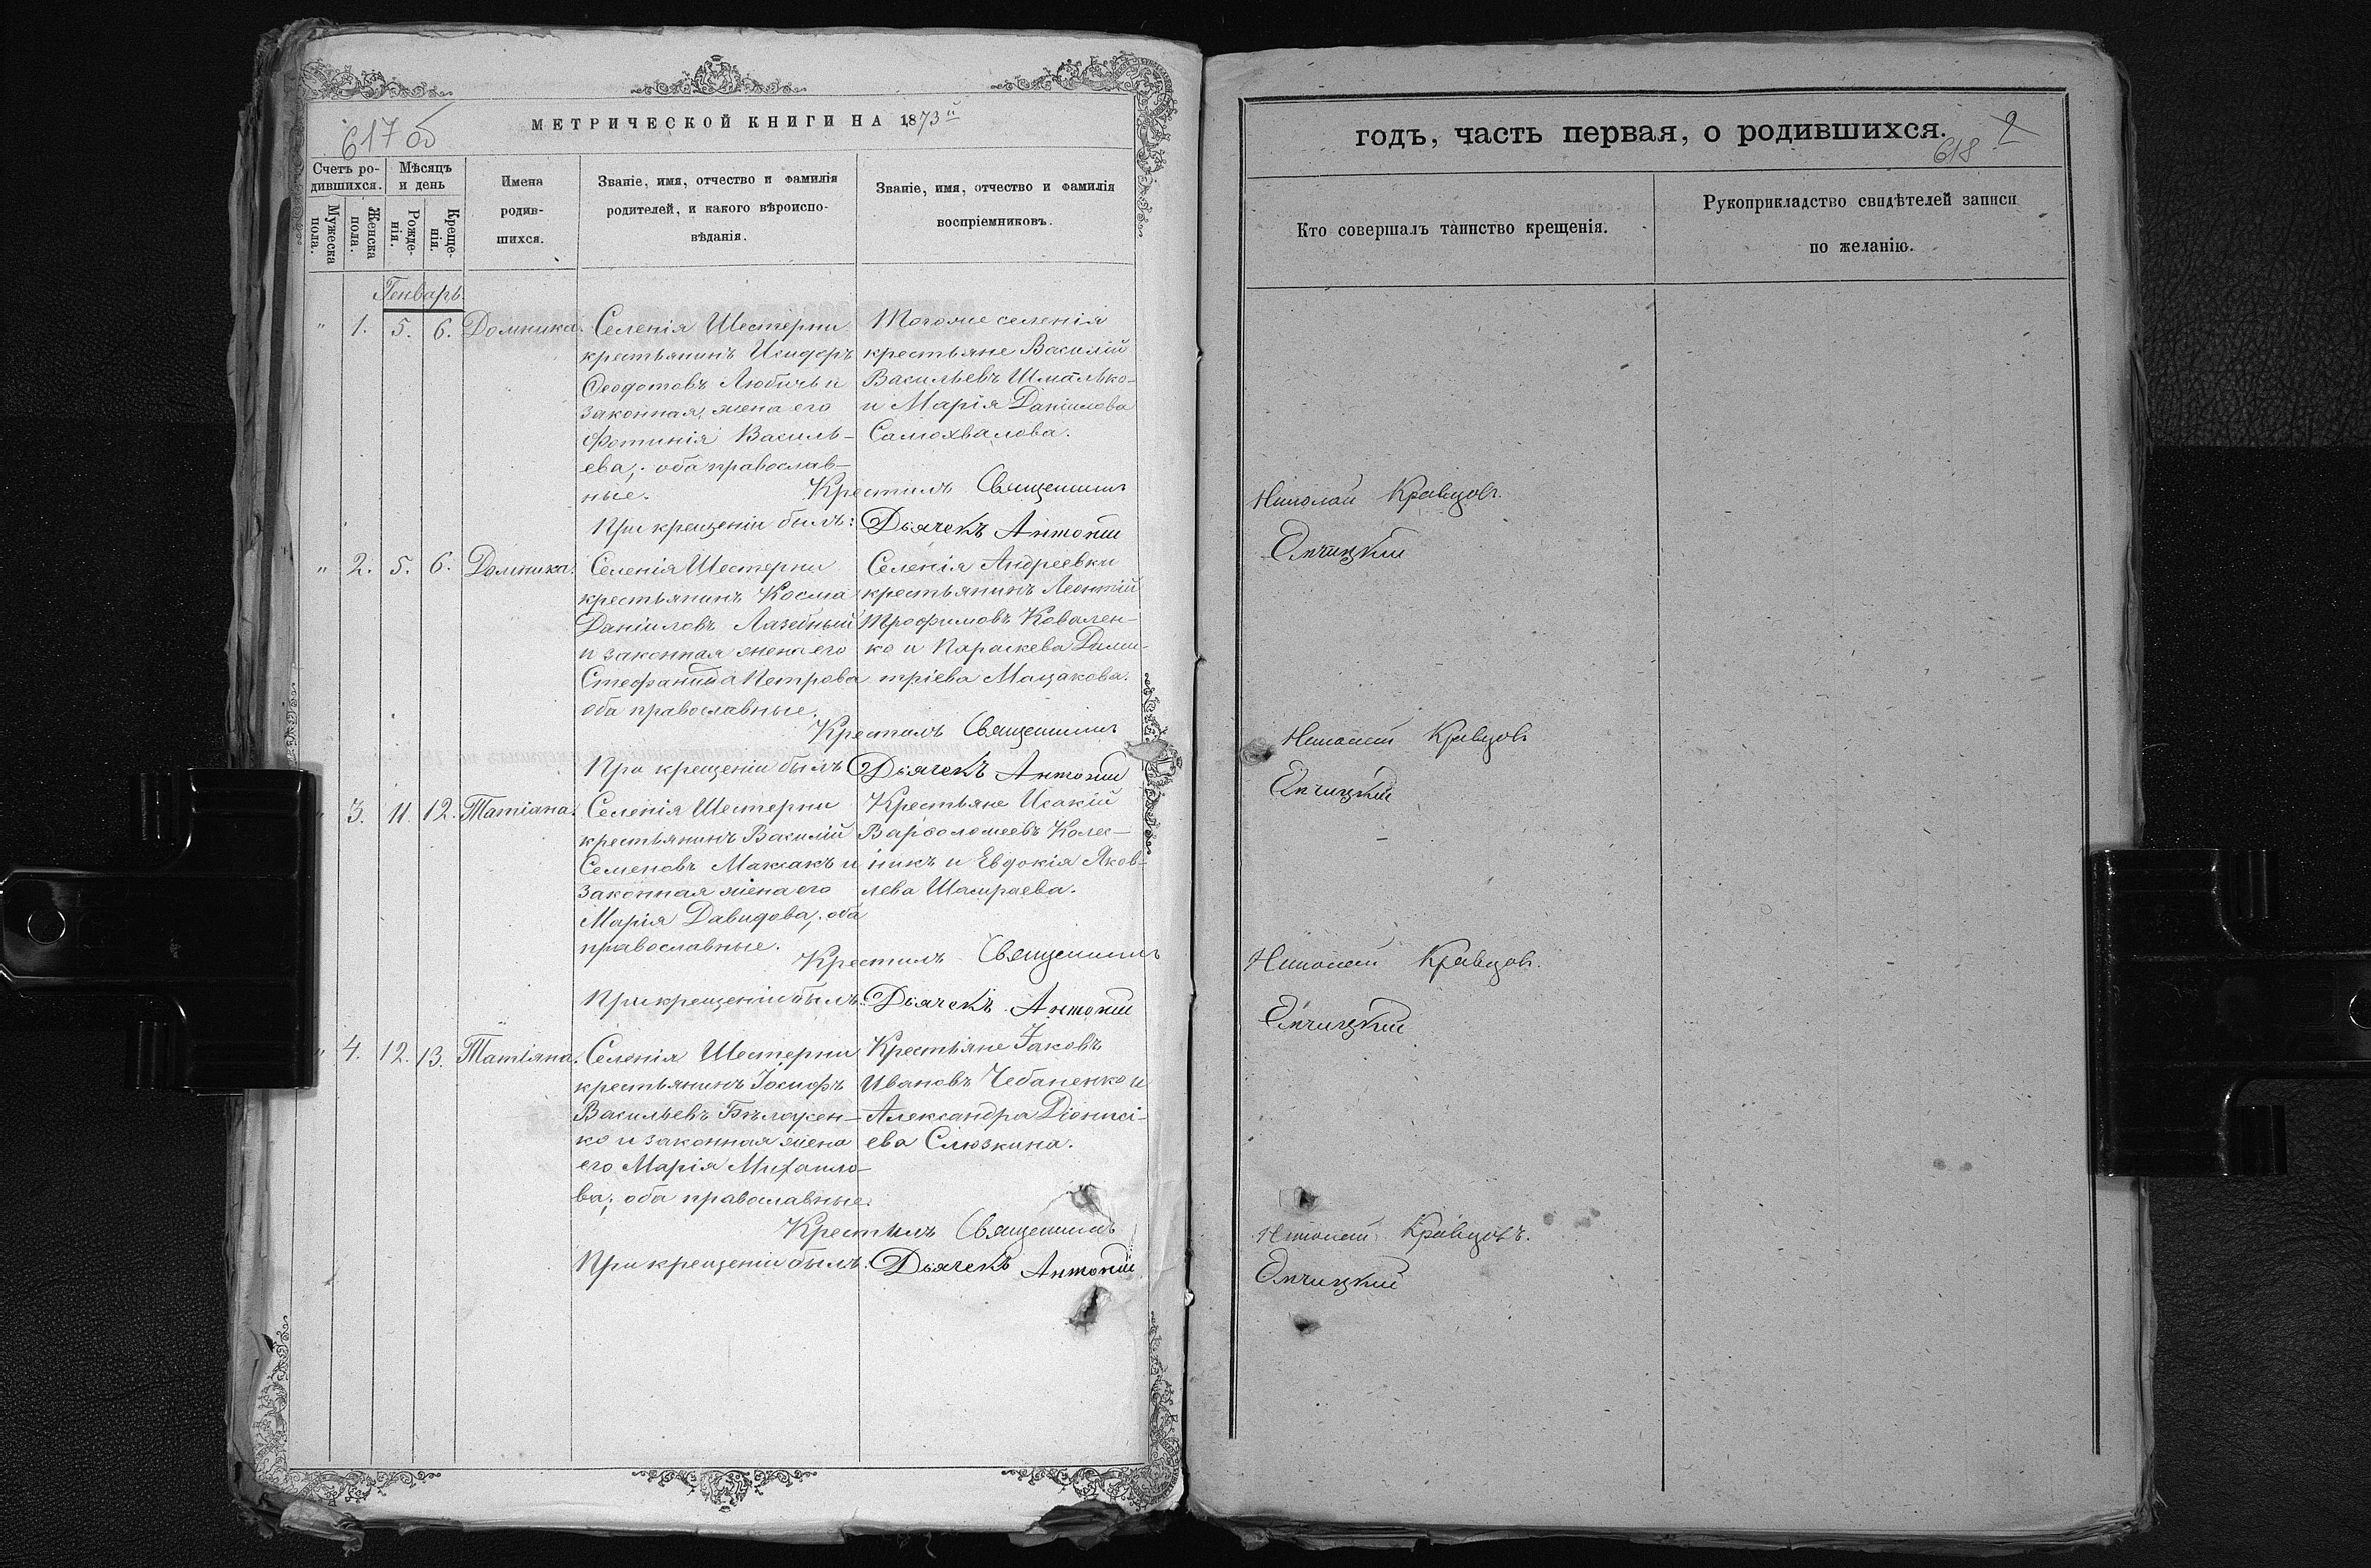 617 об
МЕТРИЧЕСКОЙ КНИГИ НА 1873й
Счетъ ро-
дившихся.
Мѣсяцъ
и день
Мужеска
пола.
Женска
пола.
Рожде-
нія.
Креще-
нія.
Имена
родив-
шихся.
Званіе, имя, отчество и фамилія
родителей, и какого вѣроиспо-
вѣданія.
Званіе, имя, отчество и фамилія
воспріемниковъ.
Генварь.
" 1. 5. 6. Домника.
Селенія Шестерни
крестьянинъ Исидоръ
Ѳеодотовъ Любичь и
законная жена его
Фотинія Василь-
ева; оба православ-
ные.
Тогоже селенія
крестьяне Василій
Васильевъ Шмалько
и Марія Даніилова
Самохвалова.
Крестилъ Священникъ
При крещеніи былъ: Дьячекъ Антоній
" 2. 5. 6. Домника.
Селенія Шестерни
крестьянинъ Косма
Даніиловъ Лазебный
и законная жена его
Стефанида Петрова
оба православные.
Селенія Андреевки
крестьянинъ Леонтій
Трофимовъ Ковален-
ко и Параскева Дими-
тріева Мацакова.
Крестилъ Священникъ
При крещеніи былъ Дьячекъ Антоній
" 3. 11. 12. Татіана.
Селенія Шестерни
крестьянинъ Василій
Семеновъ Максакъ и
законная жена его
Марія Давидова; оба
православные.
Крестьяне Исакій
Варѳоломеевъ Колес-
никъ и Евдокія Яков-
лева Шамраева.
Крестилъ Священникъ
При крещеніи былъ: Дьячекъ Антоній
" 4. 12. 13. Татіяна.
Селенія Шестерни
крестьянинъ Іосифъ
Васильевъ
ко и законная жена
его Марія Михаило-
ва; оба православные.
Крестьяне Іаковъ
Ивановъ Чебаненко и
Александра Діонисі-
ева Слюзкина.
Крестилъ Священникъ
При крещеніи былъ: Дьячекъ Антоній
годъ, часть первая, о родившихся.
618 2
Кто совершалъ таинство крещенія.
Рукоприкладство свидѣтелей записи
по желанію.
Николай Кравцовъ.
Николай Кравцовъ
Николай Кравцовъ.
Николай Кравцовъ.